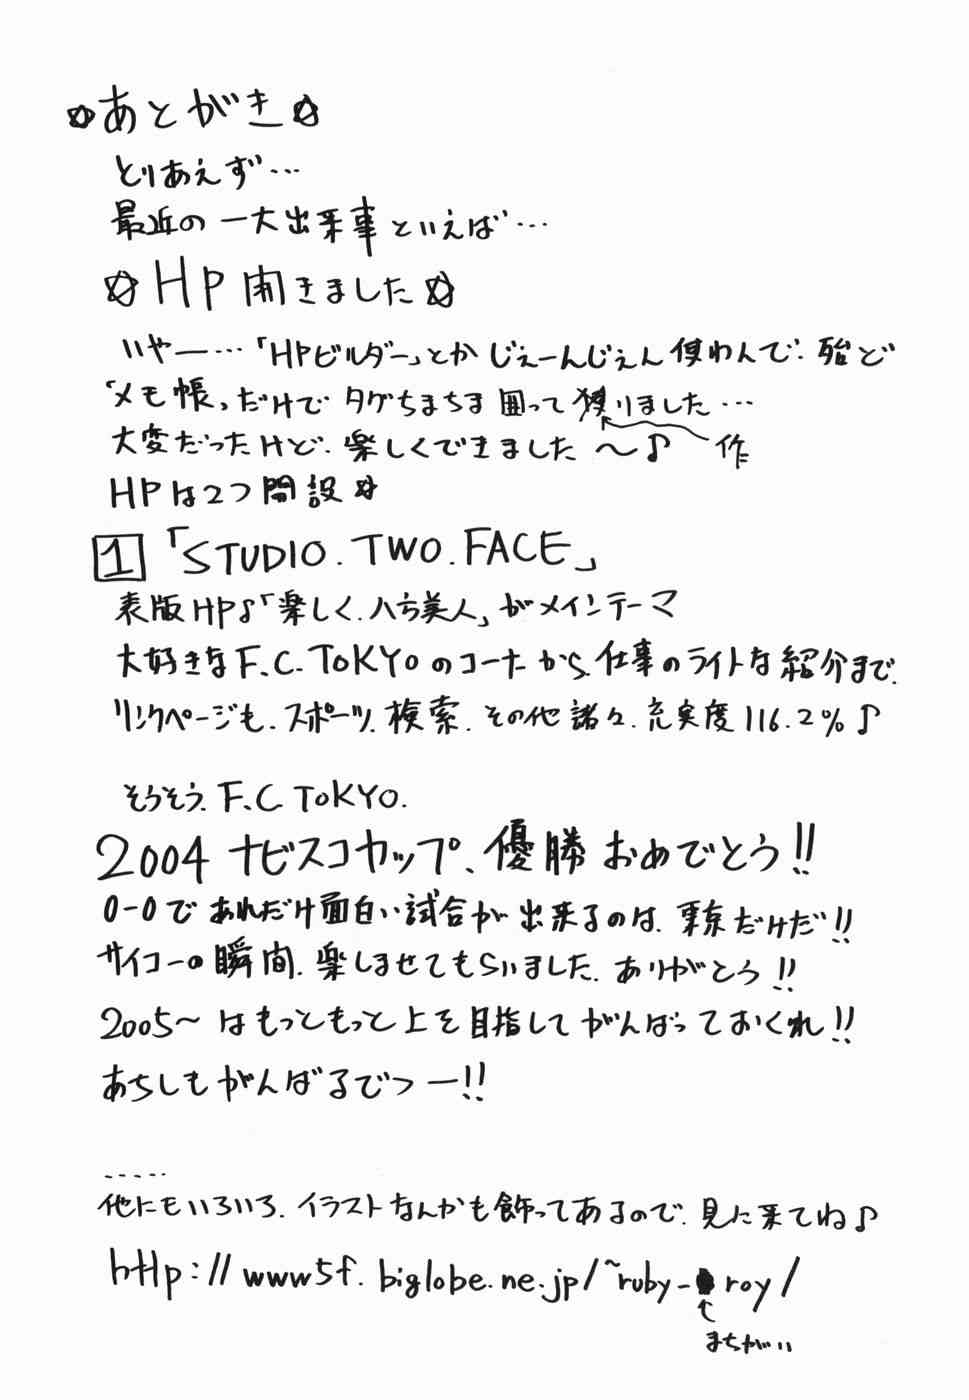 ☆あとがき☆
とりあえず…
最近の一大出来事といえば…
☆HP開きました☆
いやー…「HPビルダー」とかじぇーんじぇん使わんで、殆ど
「メモ帳」だけでタグちまちま囲って獲りました…
大変だったけど、楽しくできました〜♪ 作
HPは2つ開設☆
1「STUDIO.TWO.FACE」
表版HP♪「楽しく、八方美人」がメインテーマ
大好きなF.C.TOKYOのコーナーから、仕事のライトな紹介まで、
リンクページも、スポーツ、検索、その他諸々、充実度116.2%♪
そうそう、F.C TOKYO.
2004ナビスコカップ、優勝おめでとう!!
0-0であれだけ面白い試合が出来るのは、東京だけだ!!
サイコーの瞬間、楽しませてもらいました、ありがとう!!
2005〜はもっともっと上を目指してがんばっておくれ!!
あちしもがんばるでつー!!
.....
他にもいろいろ、イラストなんかも飾ってあるので、見に来てね♪
http://www5f.biglobe.ne.jp/~ruby-roy/
まちがい